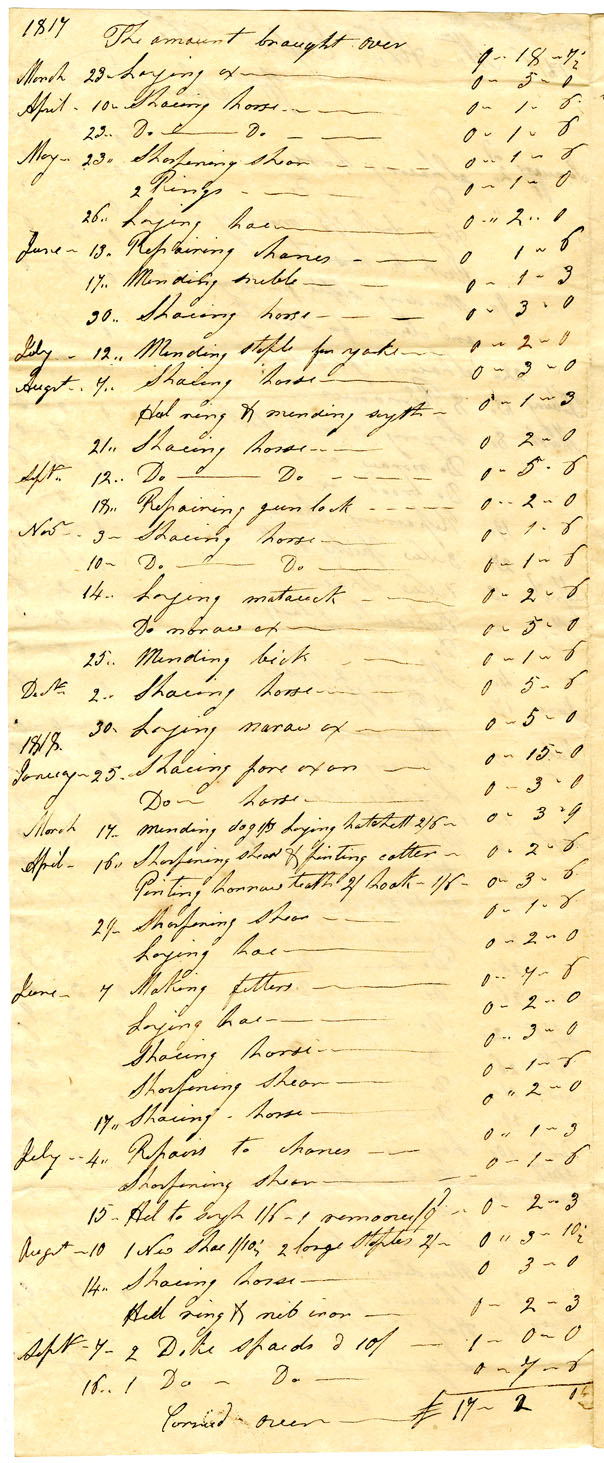 1817
The amount braught over 9 - 18 - 7½
March 23 - Laying ax 0 - 5 - 0
April - 10 - Shaeing horse 0 - 1 - 6
23.. Do Do 0 - 1 - 6
May - 23. Sharpening shear 0 - 1 - 6
2 Rings 0 - 1 - 0
26.. Laying hae 0 - 2 - 0
June - 13. Repairing chanes 0 1 - 6
17. Mending 0 - 1 - 3
30.. Shaeing horse 0 - 3 - 0
July - 12.. Mending staple for yoake 0 - 2 - 0
Augst - 7.. Shaeing horse 0 - 3 - 0
Hel ring & mending syth 0 - 1 - 3
21.. Shaeing horse 0 2 - 0
Sept.. 12.. Do Do 0 - 5 - 6
18.. Repairing gun lock 0 - 2 - 0
Nov - 3 - Shaeing horse 0 - 1 - 6
10 - Do Do 0 - 1 - 6
14.. Laying matuock 0 - 2 - 6
Do naraw ax 0 - 5 - 0
25.. Mending bick 0 - 1 - 6
2.. Shaeing horse 0 5 - 6
30 - Laying naraw ax 0 - 5 - 0
1818
January - 25 - Shaeing fore oxon 0 - 15 - 0
Do - horse 0 - 3 - 0
March 17. mending dog Laying hatchett 2/6 0 - 3 - 9
April - 16.. Sharpening shear & pinting cotter 0 - 2 - 6
Pinting harraw teath 2/ hoak - 1/6 0 - 3 - 6
29 - Sharpening shear 0 - 1 - 6
Laying hae 0 - 2 - 0
June - 7 Making fetters 0 - 7 - 6
Laying hae 0 - 2 - 0
Shaeing horse 0 - 3 - 0
Sharpening shear 0 - 1 - 6
17.. Shaeing - horse 0 - 2 - 0
July - 4.. Repairs to chanes 0 - 1 - 3
Sharpening shear 0 - 1 - 6
15 - Hel to syth 1/6 - 1 remoove /9 0 - 2 - 3
August - 10 1 New Shae 1/10½ 2 large staples 2/ 0 - 3 - 10½
14.. Shaeing horse 0 3 - 0
Hel ring & neb iron 0 - 2 - 3
Sept - 7 - 2 Dike spaeds 10/ 1 - 0 - 0
16.. 1 Do - Do 0 - 7 - 6
Carried over £ 17 - 2